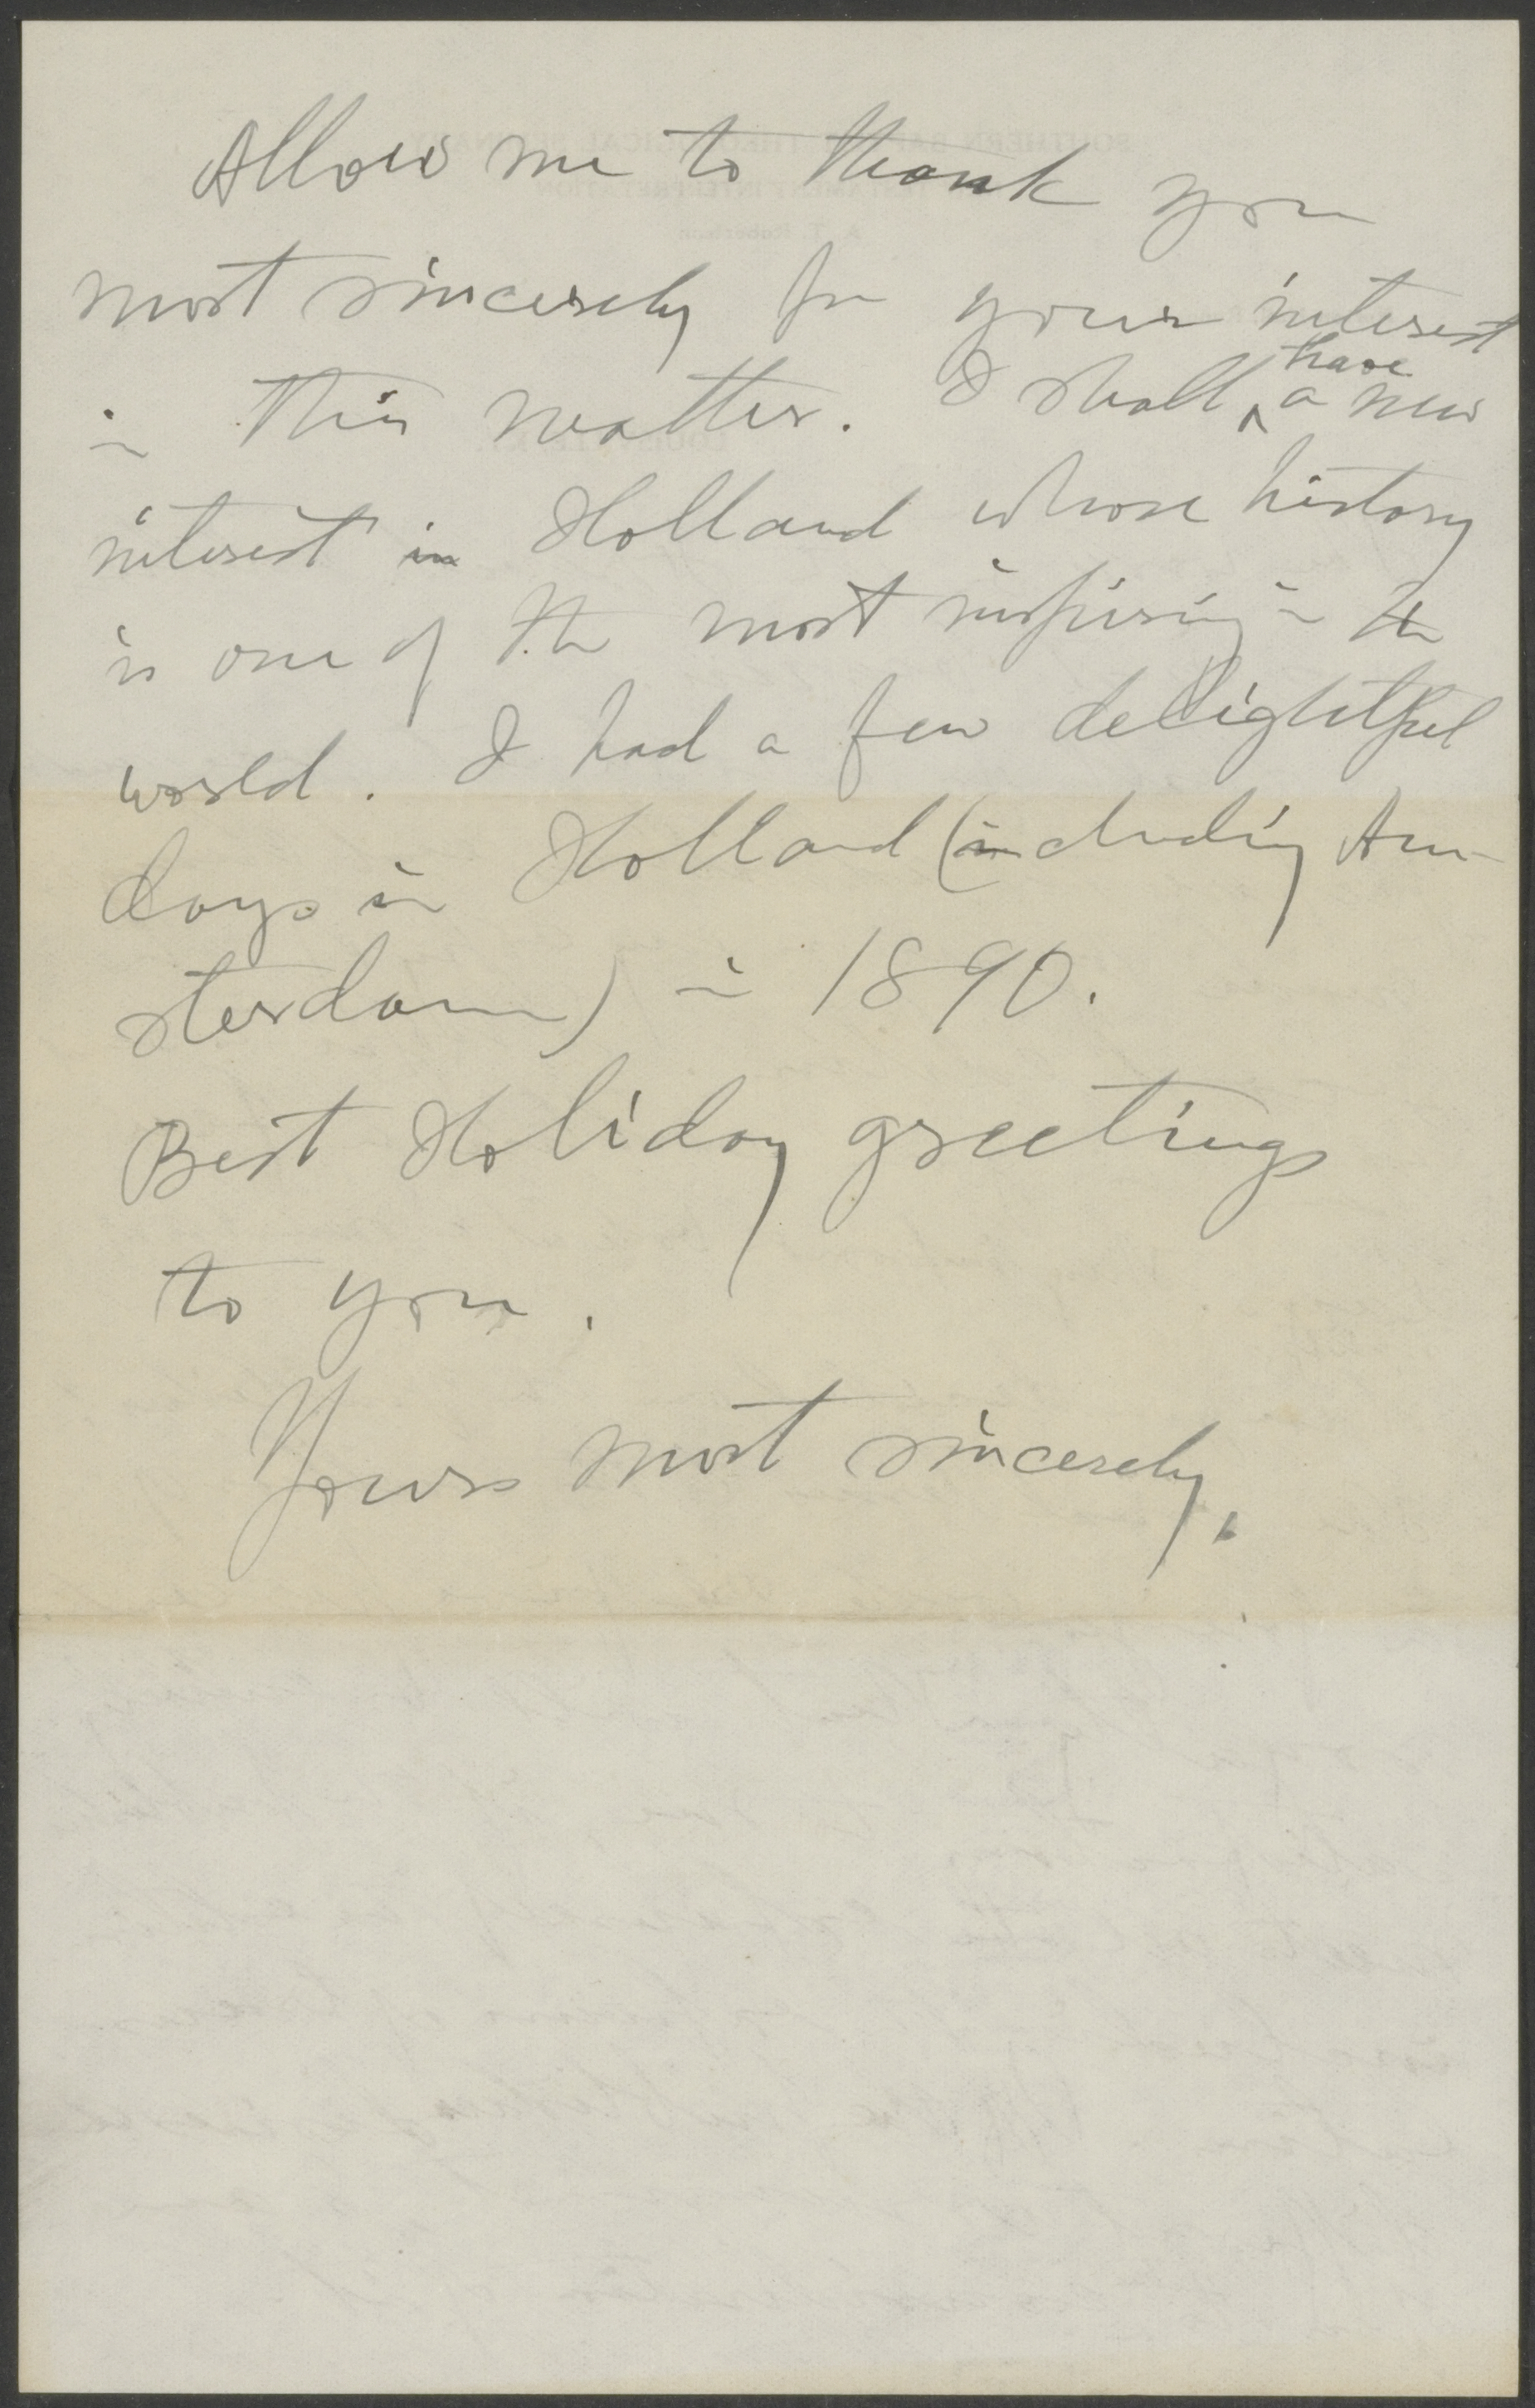 Allow me to thank you
most sincerely for your interest
in this matter. I shall ^have a new
interest in Holland whose history
is one of the most inspiring in the
world. I had a few delightful
days in Holland (including Am-
sterdam) in 1890.
Best Holiday greetings
to you.
Yours most sincerely,